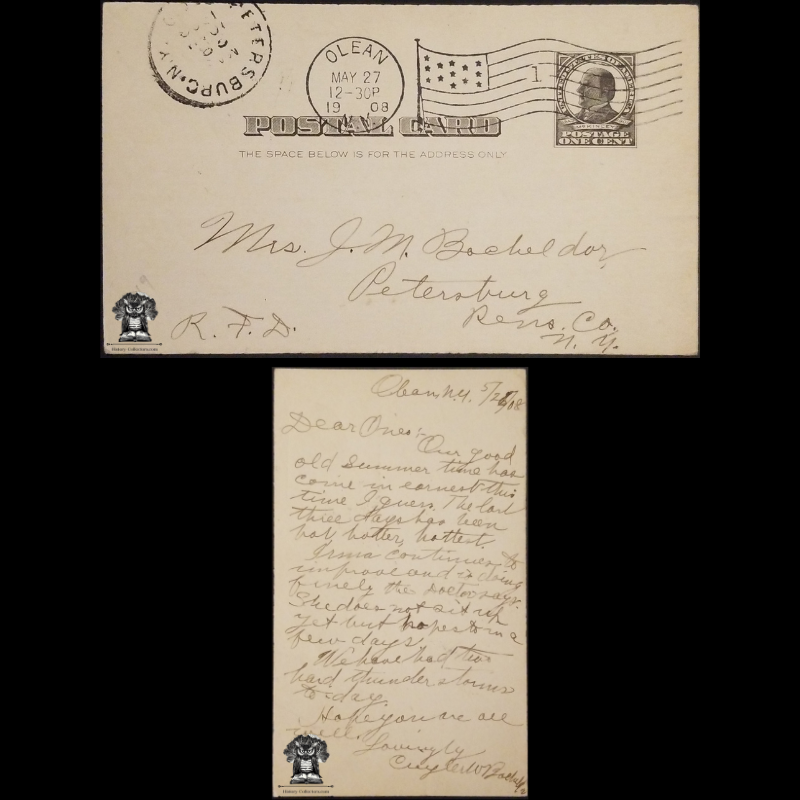 PETERSBURG. N.Y.
OLEAN
MAY 27
12-30P
19 08
N.Y.
1
UNITED STATES OF AMERICA
McKINLEY
POSTAGE
ONE CENT
POSTAL CARD
THE SPACE BELOW IS FOR THE ADDRESS ONLY
Mrs. J. M. Bacheldor,
Petersburg
Rens. Co.
R. F. D.
N. Y.
History-Collectors.com
Olean, N.Y. 5/26/08
Dear Ones:-
Our good
old summer time has
come in earnest this
time I guess. The last
three days has been
hot, hotter, hottest.
Irma continues to
improve and is doing
finely the Doctor says.
She does not sit up
yet but hopes to in a
few days.
We have had two
hard thunder storms
to-day.
Hope you are all
well.
Lovingly
Cuyler W
History-Collectors.com